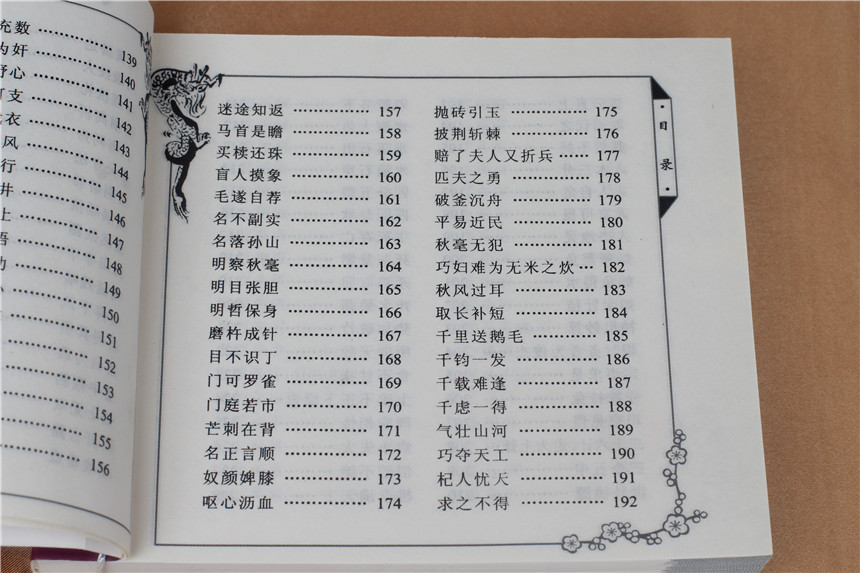 充数 ………… 139
为奸 ………… 140
野心 ………… 141
………… 142
………… 143
风 ………… 144
行 ………… 145
井 ………… 146
上 ………… 147
语 ………… 148
………… 149
………… 150
………… 151
………… 152
………… 153
………… 154
………… 155
………… 156
迷途知返 ………… 157
马首是瞻 ………… 158
买椟还珠 ………… 159
盲人摸象 ………… 160
毛遂自荐 ………… 161
名不副实 ………… 162
名落孙山 ………… 163
明察秋毫 ………… 164
明目张胆 ………… 165
明哲保身 ………… 166
磨杵成针 ………… 167
目不识丁 ………… 168
门可罗雀 ………… 169
门庭若市 ………… 170
芒刺在背 ………… 171
名正言顺 ………… 172
奴颜婢膝 ………… 173
呕心沥血 ………… 174
抛砖引玉 ………… 175
披荆斩棘 ………… 176
赔了夫人又折兵 …… 177
匹夫之勇 ………… 178
破釜沉舟 ………… 179
平易近民 ………… 180
秋毫无犯 ………… 181
巧妇难为无米之炊 … 182
秋风过耳 ………… 183
取长补短 ………… 184
千里送鹅毛 ………… 185
千钧一发 ………… 186
千载难逢 ………… 187
千虑一得 ………… 188
气壮山河 ………… 189
巧夺天工 ………… 190
杞人忧天 ………… 191
求之不得 ………… 192
目录